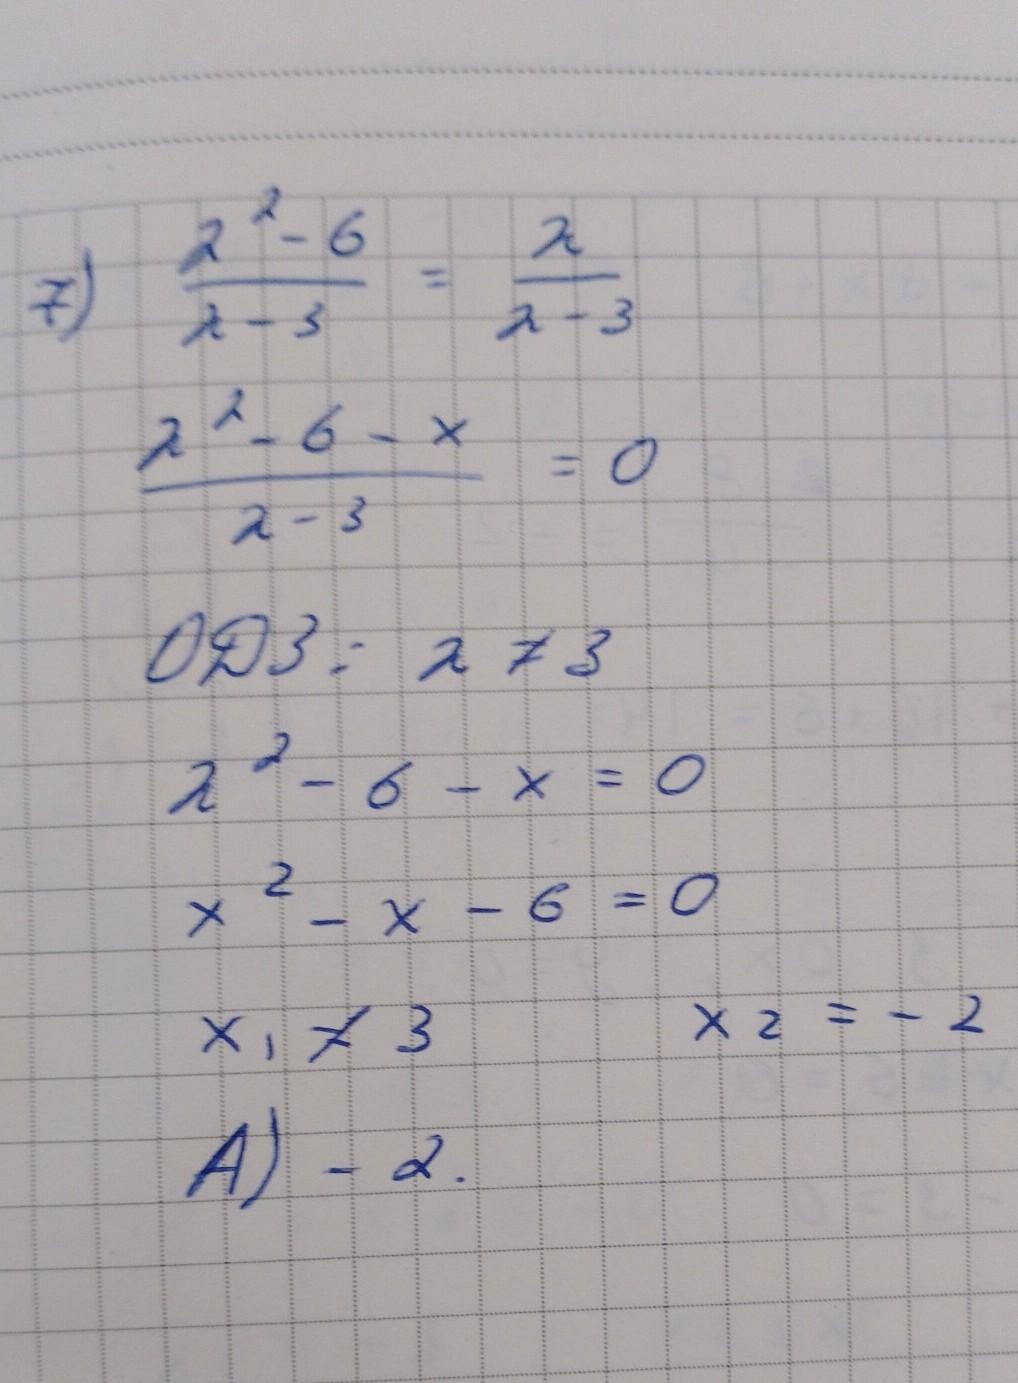 7) (x² - 6)/(x - 3) = x/(x - 3)
(x² - 6 - x)/(x - 3) = 0
ОДЗ: x ≠ 3
x² - 6 - x = 0
x² - x - 6 = 0
x₁ ≠ 3 x₂ = - 2
А) - 2.